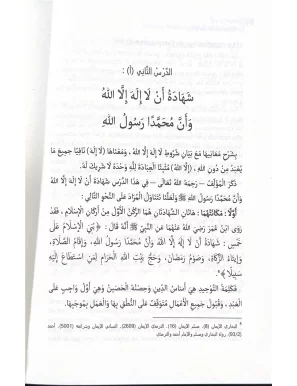 الدَّرْسُ الثَّانِي (أ) :
شَهَادَةُ أَنْ لَا إِلَهَ إِلَّا اللهُ
وَأَنَّ مُحَمَّدًا رَسُولُ اللهِ
بِشَرْحِ مَعَانِيهَا مَعَ بَيَانِ شُرُوطِ لَا إِلَهَ إِلَّا اللهُ، وَمَعْنَاهَا (لَا إِلَهَ) نَافِيًا جَمِيعَ مَا
يُعْبَدُ مِنْ دُونِ اللهِ، (إِلَّا اللهُ) مُثْبِتًا الْعِبَادَةَ لِلَّهِ وَحْدَهُ لَا شَرِيكَ لَهُ.
ذَكَرَ الْمُؤَلِّفُ - رَحِمَهُ اللهُ تَعَالَى - فِي هَذَا الدَّرْسِ شَهَادَةَ أَنْ لَا إِلَهَ إِلَّا اللهُ
وَأَنَّ مُحَمَّدًا رَسُولُ اللهِ ﷺ وَلَعَلَّنَا نَتَنَاوَلُ الْمُرَادَ عَلَى النَّحْوِ التَّالِي :
أَوَّلًا : مَكَانَتُهُمَا : هَاتَانِ الشَّهَادَتَانِ هُمَا الرُّكْنُ الْأَوَّلُ مِنْ أَرْكَانِ الْإِسْلَامِ، فَقَدْ
رَوَى ابْنُ عُمَرَ رَضِيَ اللهُ عَنْهُمَا عَنِ النَّبِيِّ ﷺ أَنَّهُ قَالَ : «بُنِيَ الْإِسْلَامُ عَلَى
خَمْسٍ : شَهَادَةِ أَنْ لَا إِلَهَ إِلَّا اللهُ وَأَنَّ مُحَمَّدًا رَسُولُ اللهِ، وَإِقَامِ الصَّلَاةِ،
وَإِيتَاءِ الزَّكَاةِ، وَصَوْمِ رَمَضَانَ، وَحَجِّ بَيْتِ اللهِ الْحَرَامِ لِمَنِ اسْتَطَاعَ إِلَيْهِ
سَبِيلًا»
فَكَلِمَةُ التَّوْحِيدِ هِيَ أَسَاسُ الدِّينِ وَحِصْنُهُ الْحَصِينُ وَهِيَ أَوَّلُ وَاجِبٍ عَلَى
الْعَبْدِ، وَقَبُولُ جَمِيعِ الْأَعْمَالِ مُتَوَقِّفٌ عَلَى النُّطْقِ بِهَا وَالْعَمَلِ بِمُوجِبِهَا.
البخاري الإيمان (8)، مسلم الإيمان (16)، الترمذي الإيمان (2609)، النسائي الإيمان وشرائعه (5001)، أحمد